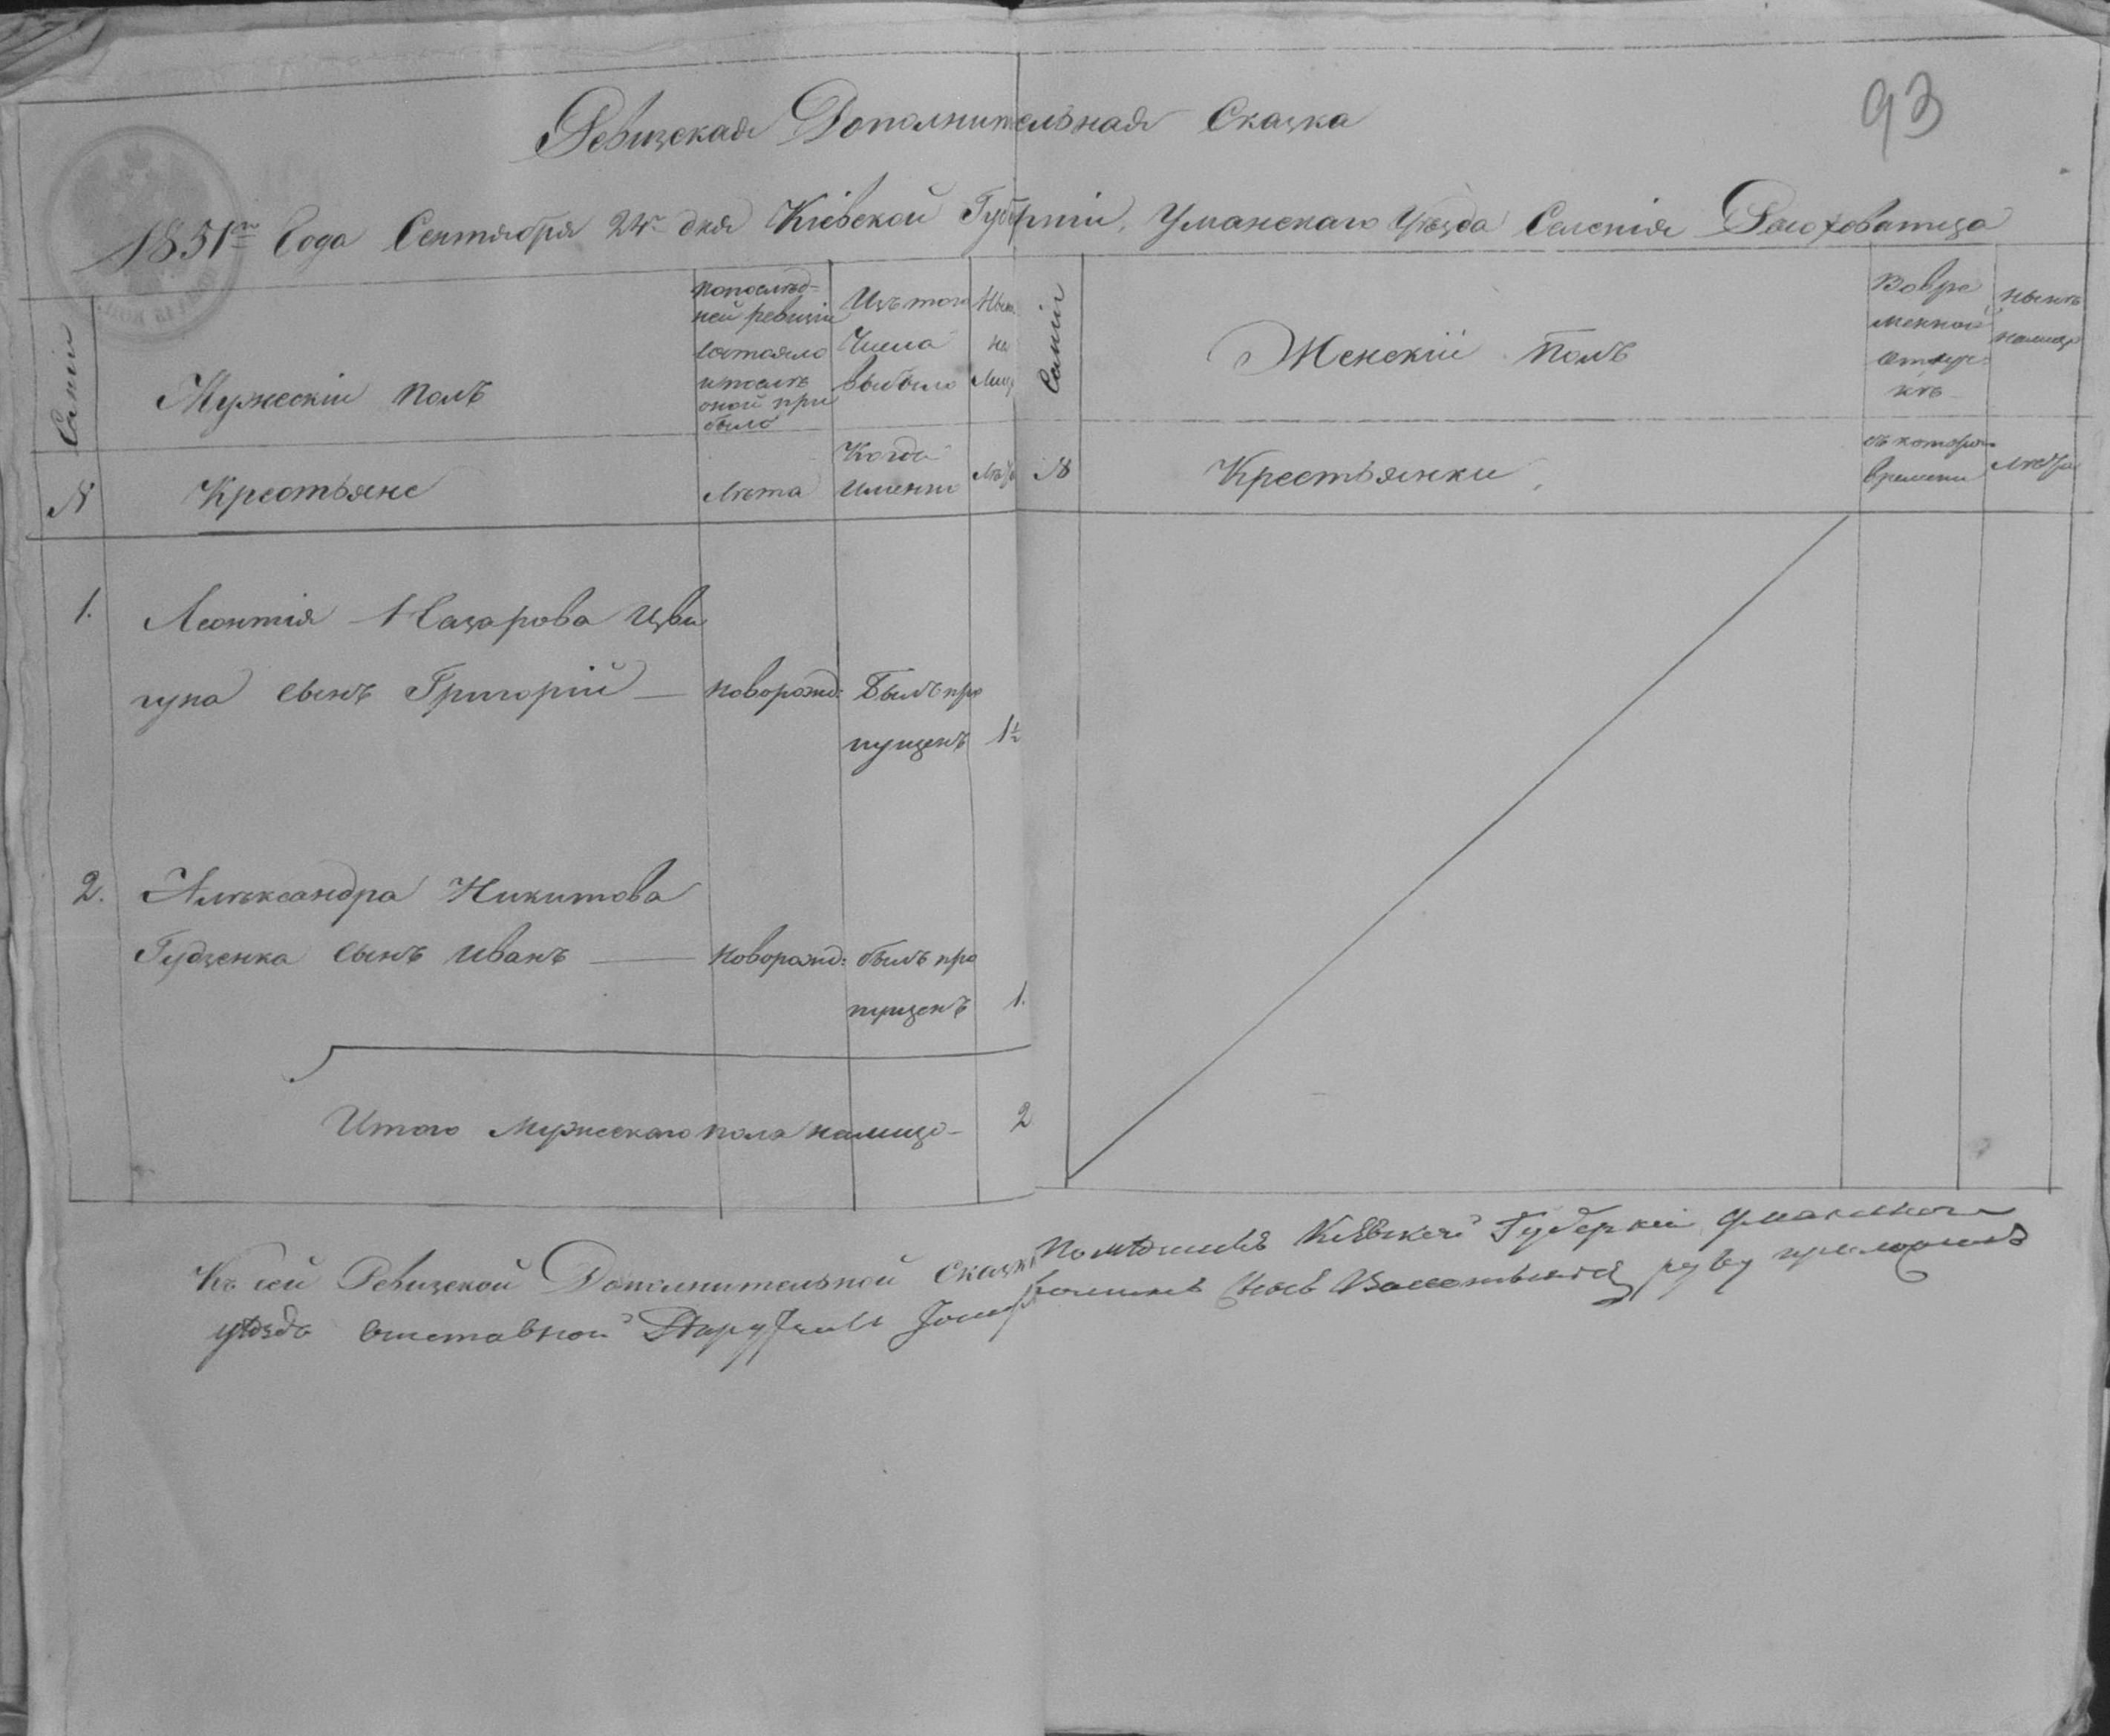 93
Ревизская Дополнительная Сказка
1851го Года Сентября 24го дня Кіевской Губерніи, Уманскаго Уѣзда Селенія
Семіи
Мужескій полъ
По послѣд-
ней ревизіи
состояло
и послѣ
оной при
было
Изъ того
Числа
выбыло
Нынѣ
на
Лицо
Семіи
Женскій полъ
Во вре
менной
отлуч-
кѣ
нынѣ
налицо
№
Крестьяне
Лѣта
Когда
именно
Лѣта
№
Крестьянки
съ котораго
времени
Лѣта
1.
Леонтія Назарова Цви
гуна сынъ Григорій — новорожд: Былъ про
пущенъ 1½
2.
Алѣксандра Никитова
Гудзенка сынъ Иванъ — новорожд: былъ про
пущенъ 1.
Итого Мужескаго пола налицо — 2
Къ сей Ревизской Дополнительной Сказки Помѣщикъ Кіевской Губерніи Уманскаго
уѣзда отставной руку приложилъ